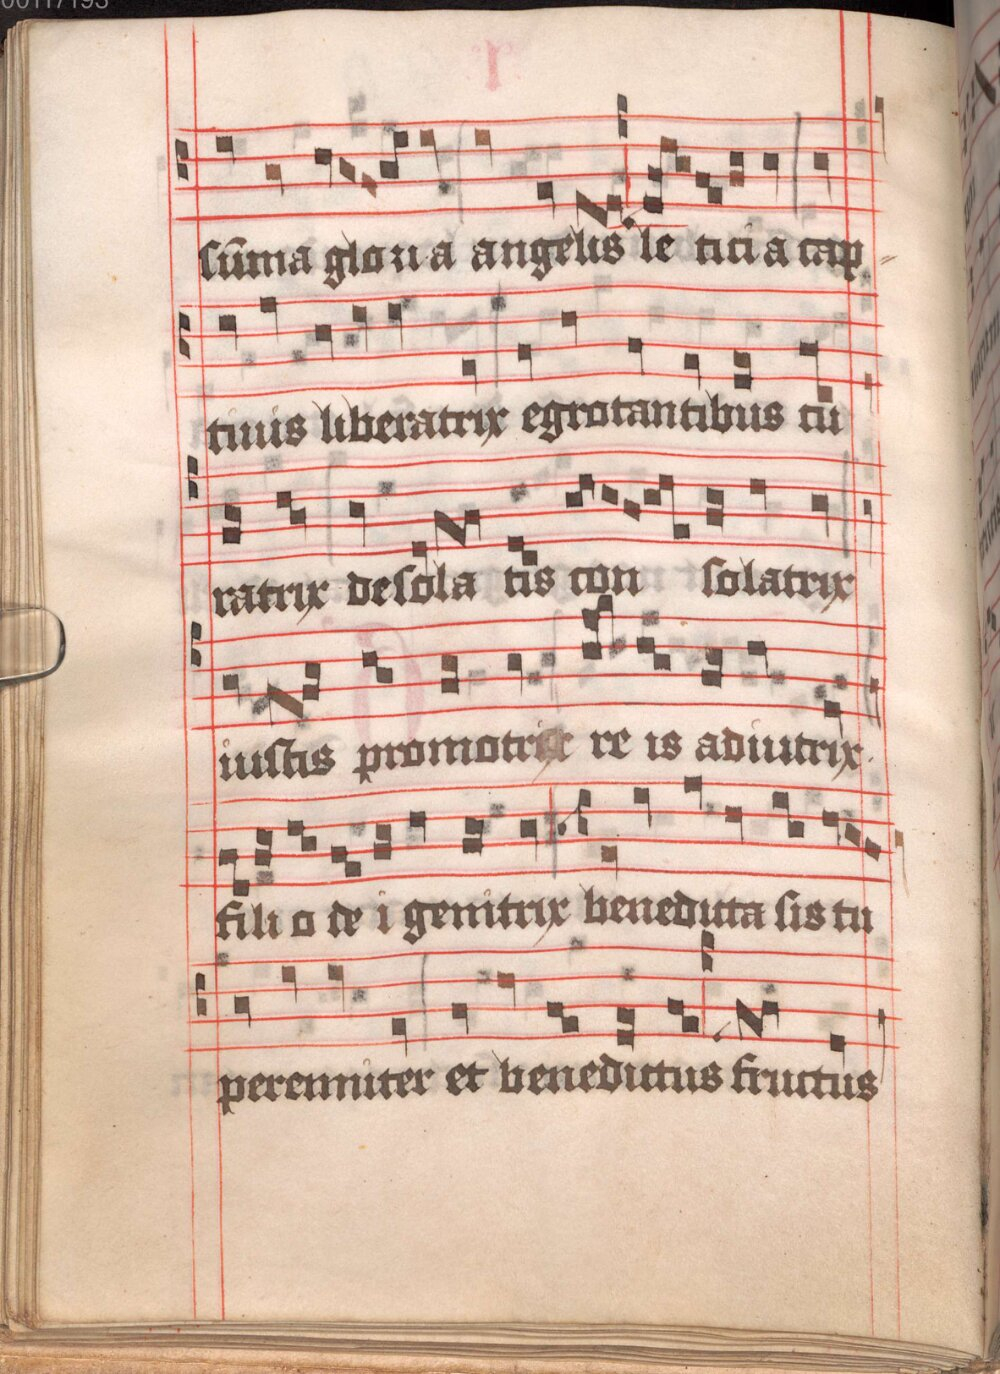 00117193
sūma glori a angelis le tici a cap
tiuis liberatrix egrotantibus cu
ratrix desola tis con solatrix
iustis promotrix re is adiutrix
fili o de i genitrix benedicta sis tu
perenniter et benedictus fructus